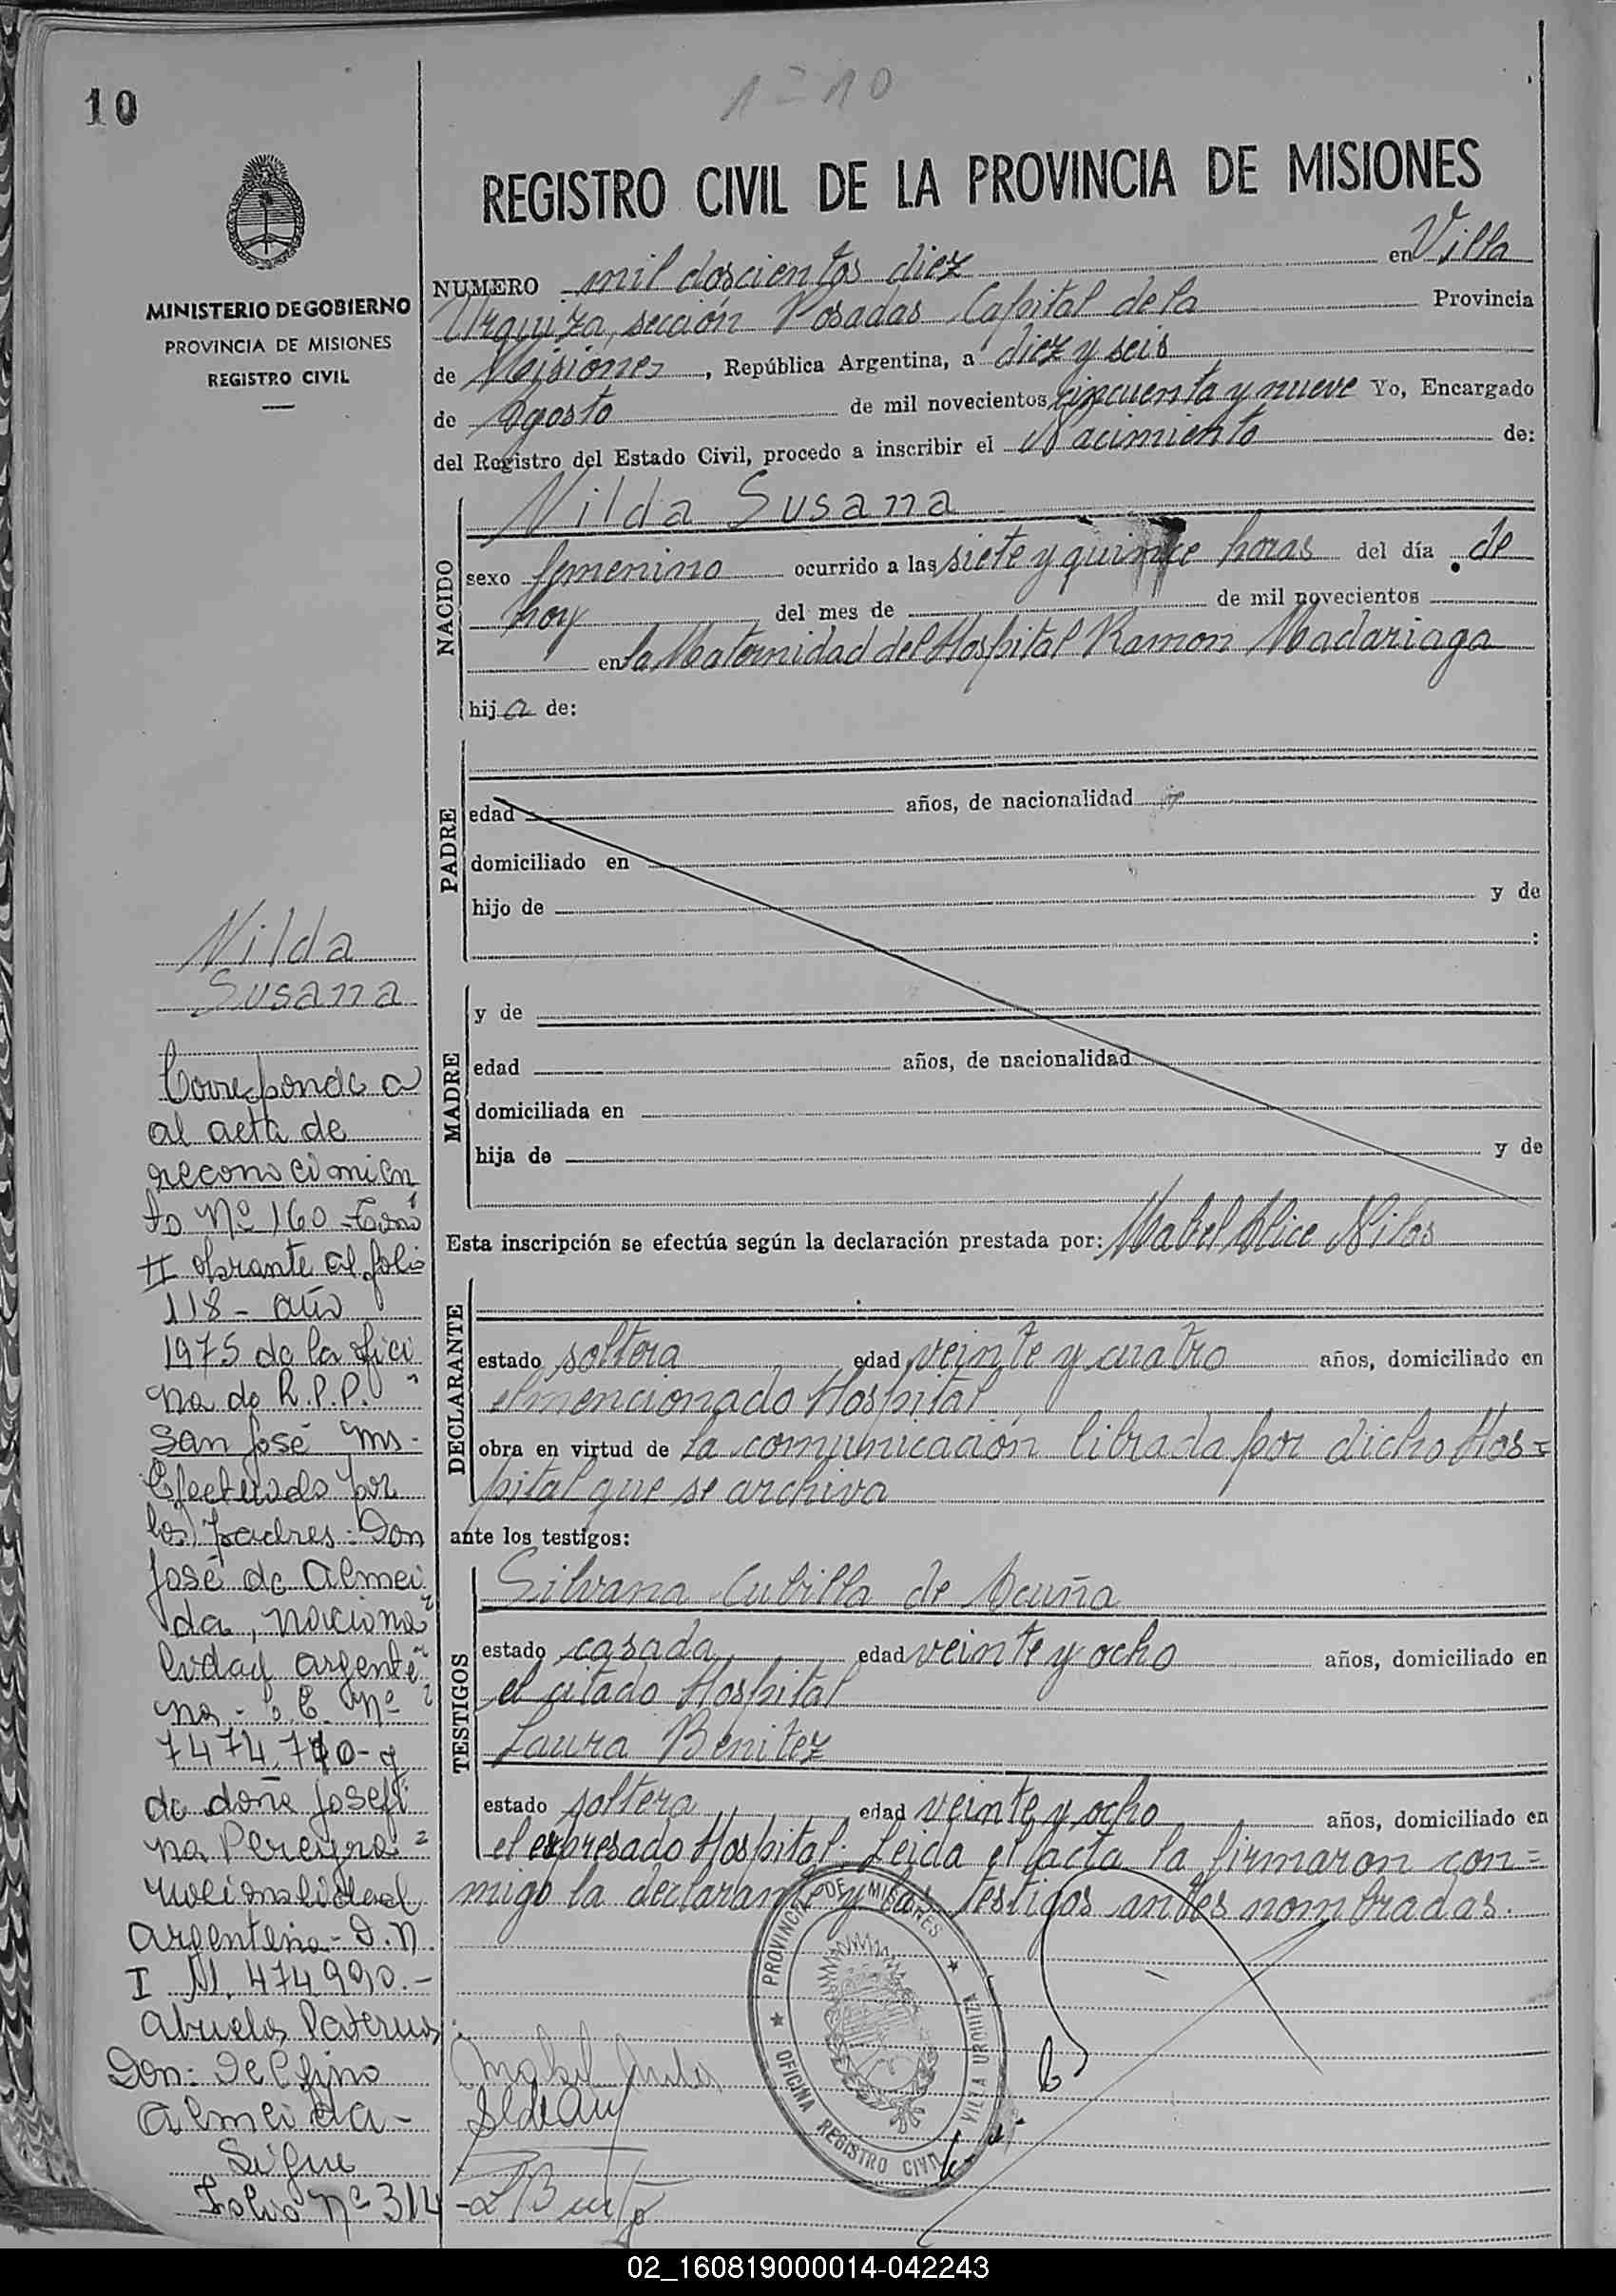 10
1=10
MINISTERIO DE GOBIERNO
PROVINCIA DE MISIONES
REGISTRO CIVIL
REGISTRO CIVIL DE LA PROVINCIA DE MISIONES
NUMERO mil doscientos diez en Villa
Urquiza, sección Posadas Capital de la Provincia
de Misiones, República Argentina, a diez y seis
de Agosto de mil novecientos cincuenta y nueve Yo, Encargado
del Registro del Estado Civil, procedo a inscribir el Nacimiento de:
NACIDO
Nilda Susana
sexo femenino ocurrido a las siete y quince horas del día de
hoy del mes de de mil novecientos
en la Maternidad del Hospital Ramon Madariaga
hija de:
PADRE
edad años, de nacionalidad
domiciliado en
hijo de y de
:
MADRE
y de
edad años, de nacionalidad
domiciliada en
hija de y de
Esta inscripción se efectúa según la declaración prestada por: Mabel Alice Nilos
DECLARANTE
estado soltera edad veinte y cuatro años, domiciliado en
el mencionado Hospital
obra en virtud de la comunicación librada por dicho Hos=
pital que se archiva
ante los testigos:
TESTIGOS
Silvana Cubilla de Acuña
estado casada edad veinte y ocho años, domiciliado en
el citado Hospital
Laura Benitez
estado soltera edad veinte y ocho años, domiciliado en
el expresado Hospital. Leida el acta la firmaron con=
migo la declarante y las testigos antes nombradas.
PROVINCIA DE MISIONES
OFICINA REGISTRO CIVIL
VILLA URQUIZA
Nilda
Susana
Corresponde a
al acta de
reconocimien
to Nº 160 Tomo
II obrante al folio
118 - año
1975 de la ofici
na de R.P.P.
San José Ms.
Efectuado por
los padres: Don
José de Almei
da, naciona
lidad argenti
na - Nº
7474.710- y
de doña Josefi
na Pereyra
nacionalidad
Argentina - D.N.
I M. 474990.-
Abuelos Paternos
Don: Delfino
Almeida -
Sigue
Folio Nº 314
02_160819000014-042243